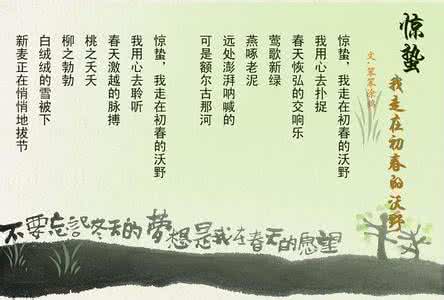 惊蛰
我走在初春的沃野
文·笨笨涂
惊蛰，我走在初春的沃野
我用心去扑捉
春天恢弘的交响乐
莺歌新绿
燕啄老泥
远处澎湃呐喊的
可是额尔古那河
惊蛰，我走在初春的沃野
我用心去聆听
春天激越的脉搏
桃之夭夭
柳之勃勃
白绒绒的雪被下
新麦正在悄悄地拔节
不要忘記冬天的梦想是我在春天的愿望